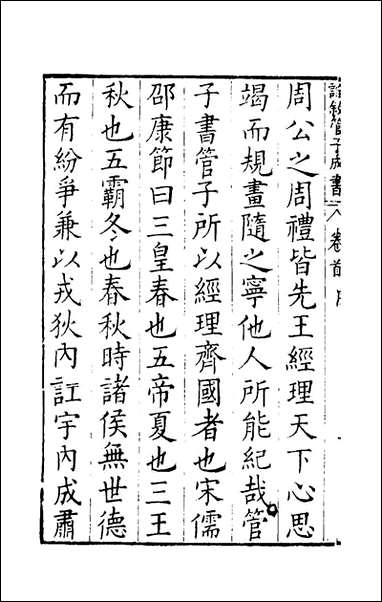 詮敘管子成書 卷首
周公之周禮皆先王經理天下心思
竭而規畫隨之寧他人所能紀哉管
子書管子所以經理齊國者也宋儒
邵康節曰三皇春也五帝夏也三王
秋也五霸冬也春秋時諸侯無世德
而有紛爭兼以戎狄內訌宇內成肅